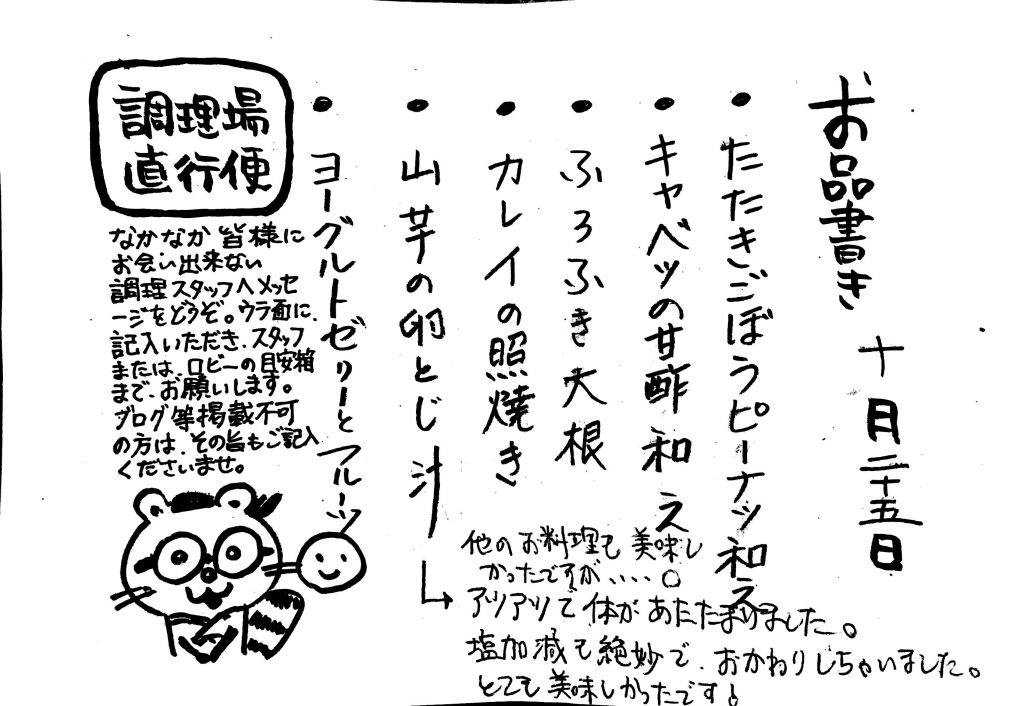 お品書き
十月二十五日
・たたきごぼうピーナッツ和え
・キャベツの甘酢和え
・ふろふき大根
・カレイの照焼き
・山芋の卵とじ汁
・ヨーグルトゼリーとフルーツ
調理場
直行便
なかなか皆様に
お会い出来ない
調理スタッフへメッセ
ージをどうぞ。ウラ面に
記入いただき、スタッフ
または、ロビーの目安箱
まで、お願いします。
ブログ等掲載不可
の方は、その旨もご記入
くださいませ。
他のお料理も美味し
かったですが、、、、。
アツアツで体があたたまりました。
塩加減も絶妙で、おかわりしちゃいました。
とても美味しかったです!